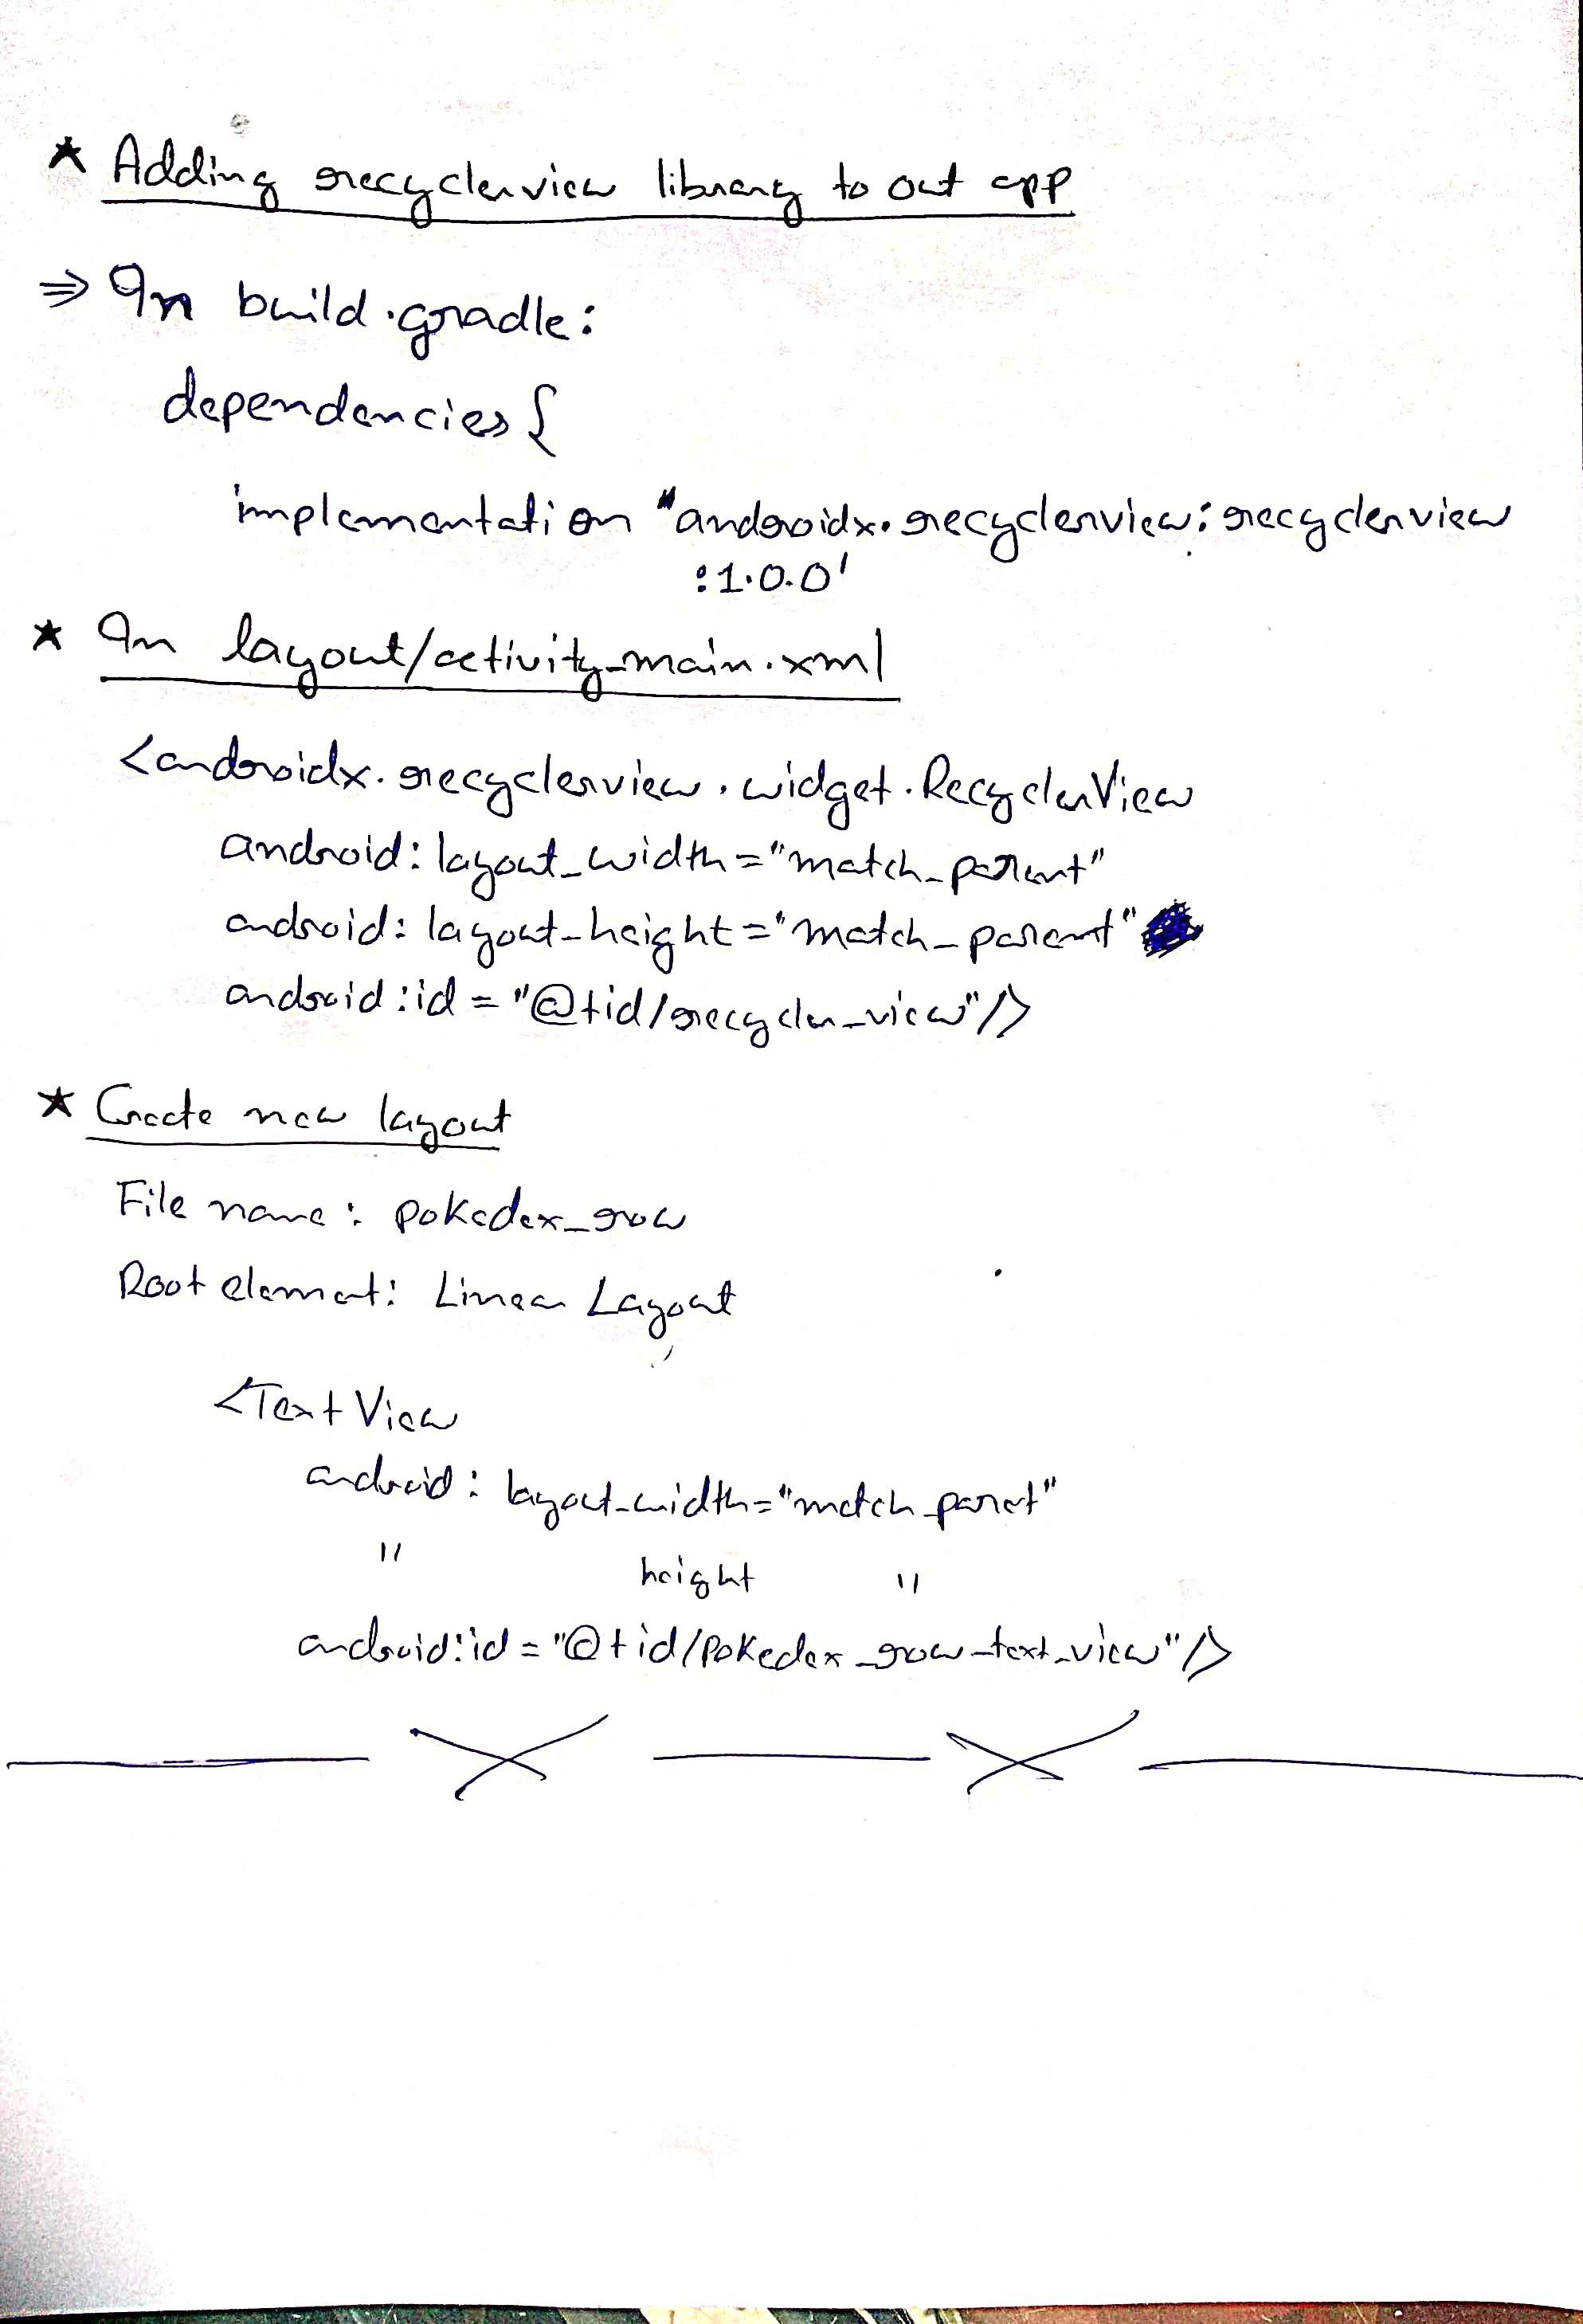 * Adding recyclerview library to out app
⇒ In build.gradle:
dependencies {
implementation "androidx.recyclerview:recyclerview
:1.0.0'
* In layout/activity_main.xml
<androidx.recyclerview.widget.RecyclerView
android:layout_width="match_parent"
android:layout_height="match_parent"
android:id="@+id/recycler_view"/>
* Create new layout
File name: pokedex_row
Root element: Linear Layout
<TextView
android:layout_width="match_parent"
" height "
android:id="@+id/pokedex_row_text_view"/>